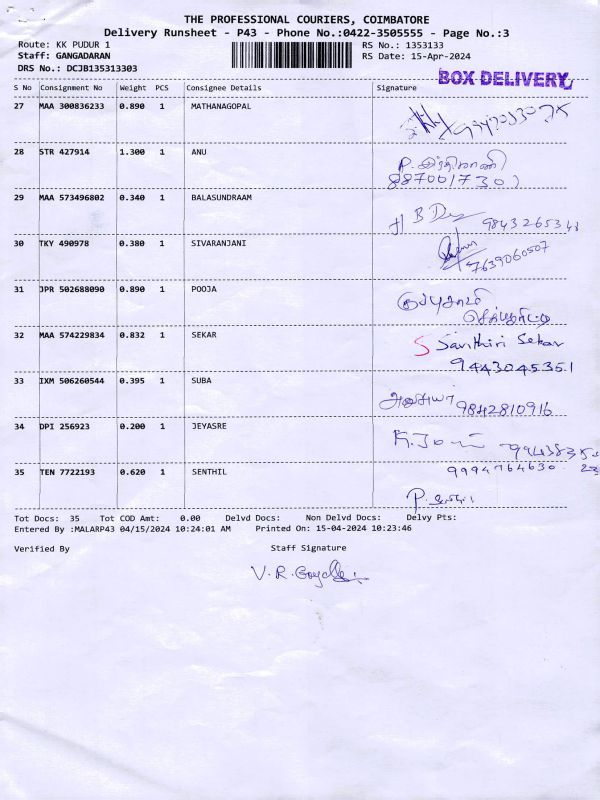 THE PROFESSIONAL COURIERS, COIMBATORE
Delivery Runsheet - P43 - Phone No.:0422-3505555 - Page No.:3
Route: KK PUDUR 1 RS No.: 1353133
Staff: GANGADARAN RS Date: 15-Apr-2024
DRS No.: DCJB135313303
BOX DELIVERY
S No Consignment No Weight PCS Consignee Details Signature
27 MAA 300836233 0.890 1 MATHANAGOPAL
28 STR 427914 1.300 1 ANU
887001730
29 MAA 573496802 0.340 1 BALASUNDRAAM
9843265343
30 TKY 490978 0.380 1 SIVARANJANI
7639060507
31 JPR 502688090 0.890 1 POOJA
32 MAA 574229834 0.832 1 SEKAR
S Savithiri Sekar
9443045351
33 IXM 506260544 0.395 1 SUBA
9842810916
34 DPI 256923 0.200 1 JEYASRE
35 TEN 7722193 0.620 1 SENTHIL
9994764630
Tot Docs: 35 Tot COD Amt: 0.00 Delvd Docs: Non Delvd Docs: Delvy Pts:
Entered By :MALARP43 04/15/2024 10:24:01 AM Printed On: 15-04-2024 10:23:46
Verified By Staff Signature